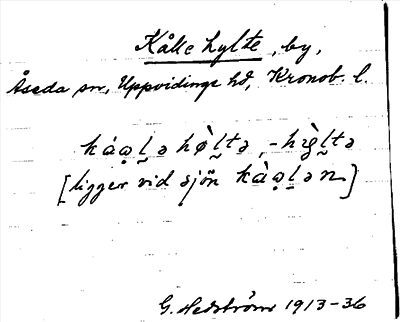 Kålle hylte, by,
Åseda sn, Uppvidinge hd, Kronob. l.
kàǫl̠ə hø̀l̠tə, -hỳl̠tə
[ligger vid sjön kàǫl̠ən]
G. Hedström 1913-36